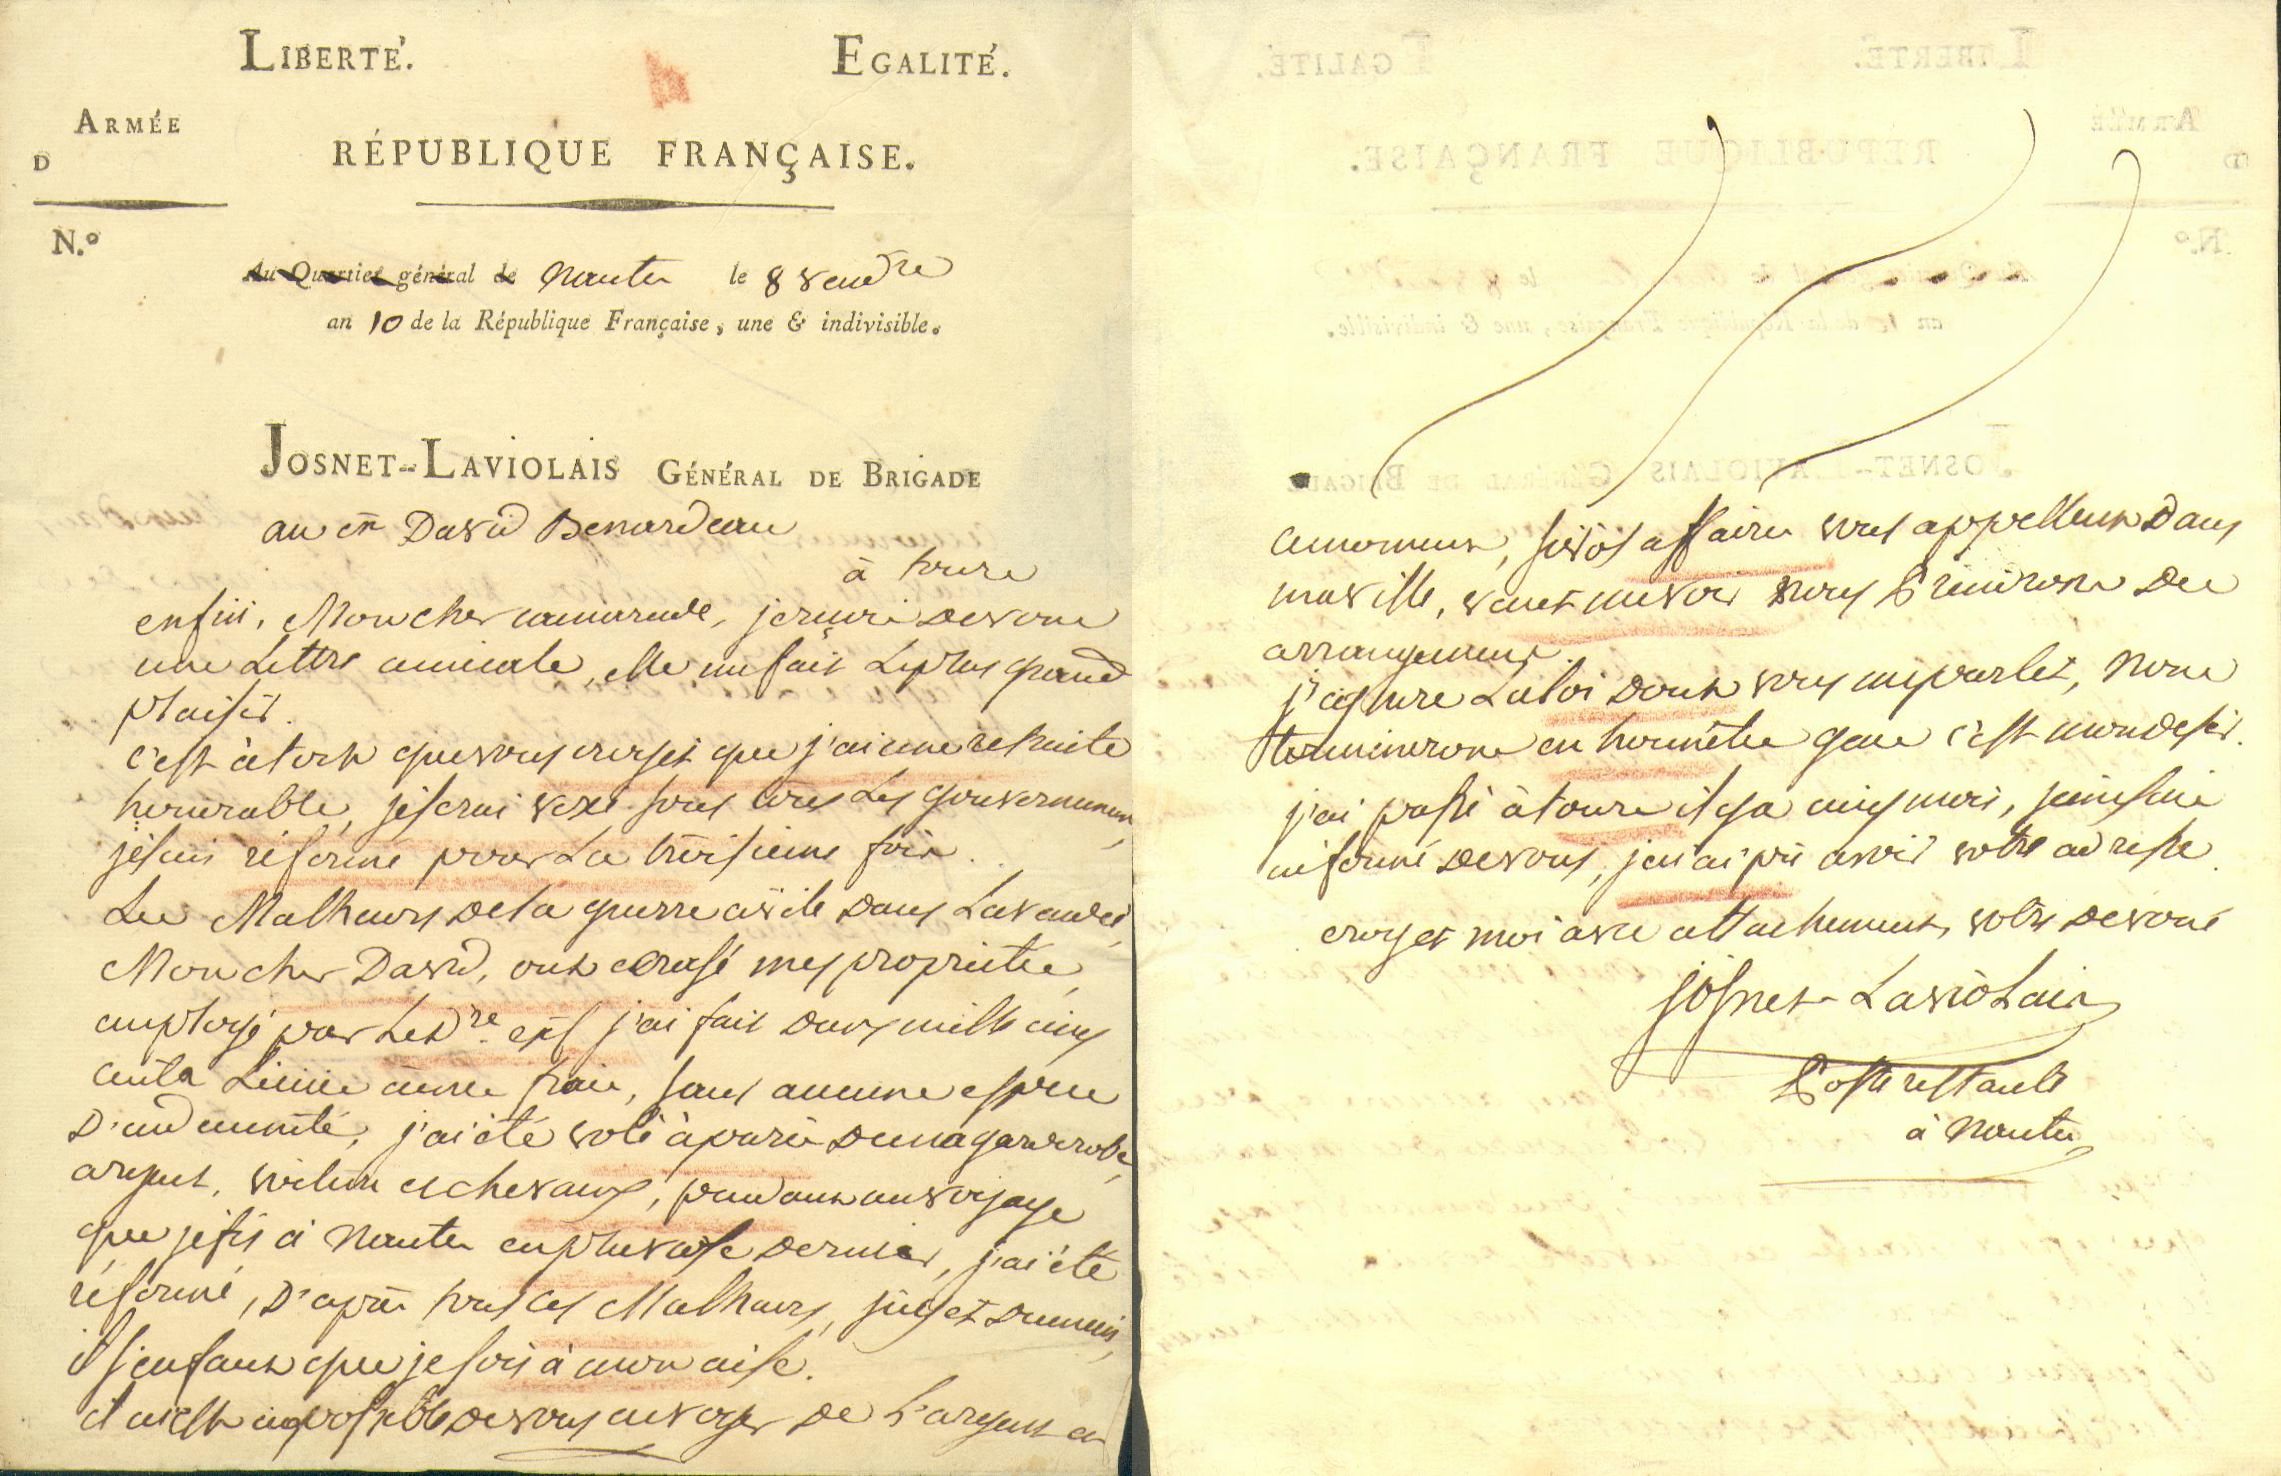 LIBERTÉ. EGALITÉ.
ARMÉE
D
RÉPUBLIQUE FRANÇAISE.
N.º
Au Quartier général de nantes le 8 vend.re
an 10 de la République Française, une & indivisible.
JOSNET-LAVIOLAIS GÉNÉRAL DE BRIGADE
au cn David Benardeau
à tours
enfin, Mon cher camarade, je reçois de vous
une Lettre amicale, elle me fait Le plus grand
plaisir.
c'est à tort que vous croyez que j'ai une retraite
honorable, je serai vexé sous tous Les gouvernemens,
je suis réformé pour La troisieme fois..
Les Malheurs de la guerre civile dans La vandée,
Mon cher David, ont écrasé mes proprietés,
employé par Le d.re j'ai fait deux mille cinq
cents Lieues à mes frais, sans aucune espece
d'indemnité, j'ai été volé à paris de ma garderobe,
argent, voiture et chevaux, pendant un voyage
que je fis à nantes en pluviose dernier, j'ai été
réformé, d'après tous ces Malheurs, jugez du mien,
il s'en faut que je sois à mon aise.
il m'est impossible de vous envoyer de L'argent en
ce moment, si vos affaires vous appellent dans
ma ville, venez me voir nous prendrons des
arrangemens.
j'ignore La loi dont vous me parlez, nous
terminerons en honnêtes gens c'est mon desir.
j'ai passé à tours il y a cinq mois, je me suis
informé de vous, je n'ai pu avoir votre adresse.
croyez moi avec attachement, votre dévoué
Josnet-Laviolais
Poste restante
à nantes